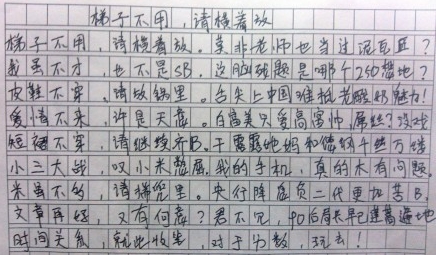 梯子不用,请横着放
梯子不用,请横着放。莫非老师也当过泥瓦匠?
我虽不才,也不是SB,这脑残题是哪个250整地?
皮鞋不穿,请放锅里。舌尖上中国谁抵老酸奶魅力!
爱情不来,许是天意。白富美只爱高富帅,屌丝?没戏
短裙不穿,请继续齐B。干露露她妈和你娘
小三大战,叹小米憋屈。我的手机,真的木有问题。
米虽不多,请揣兜里。央行降息负二代更加苦B。
文章再好,又有何意?君不见,90后局长早已遍地
时间关系,就此收笔,对于分数,玩去!